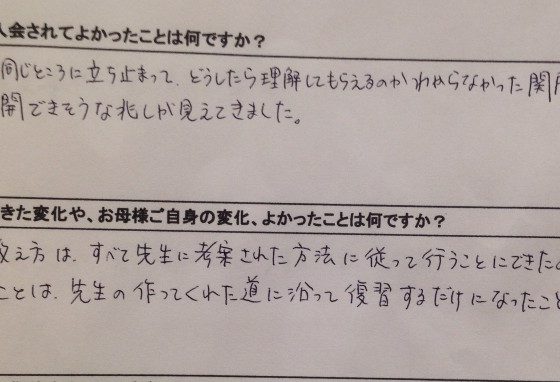 入会されてよかったことは何ですか？
同じところに立ち止まって、どうしたら理解してもらえるのかわからなかった関
開できそうな兆しが見えてきました。
きた変化や、お母様ご自身の変化、よかったことは何ですか？
教え方は、すべて先生に考案された方法に従って行うことにできた
ことは、先生の作ってくれた道に沿って復習するだけになったこと